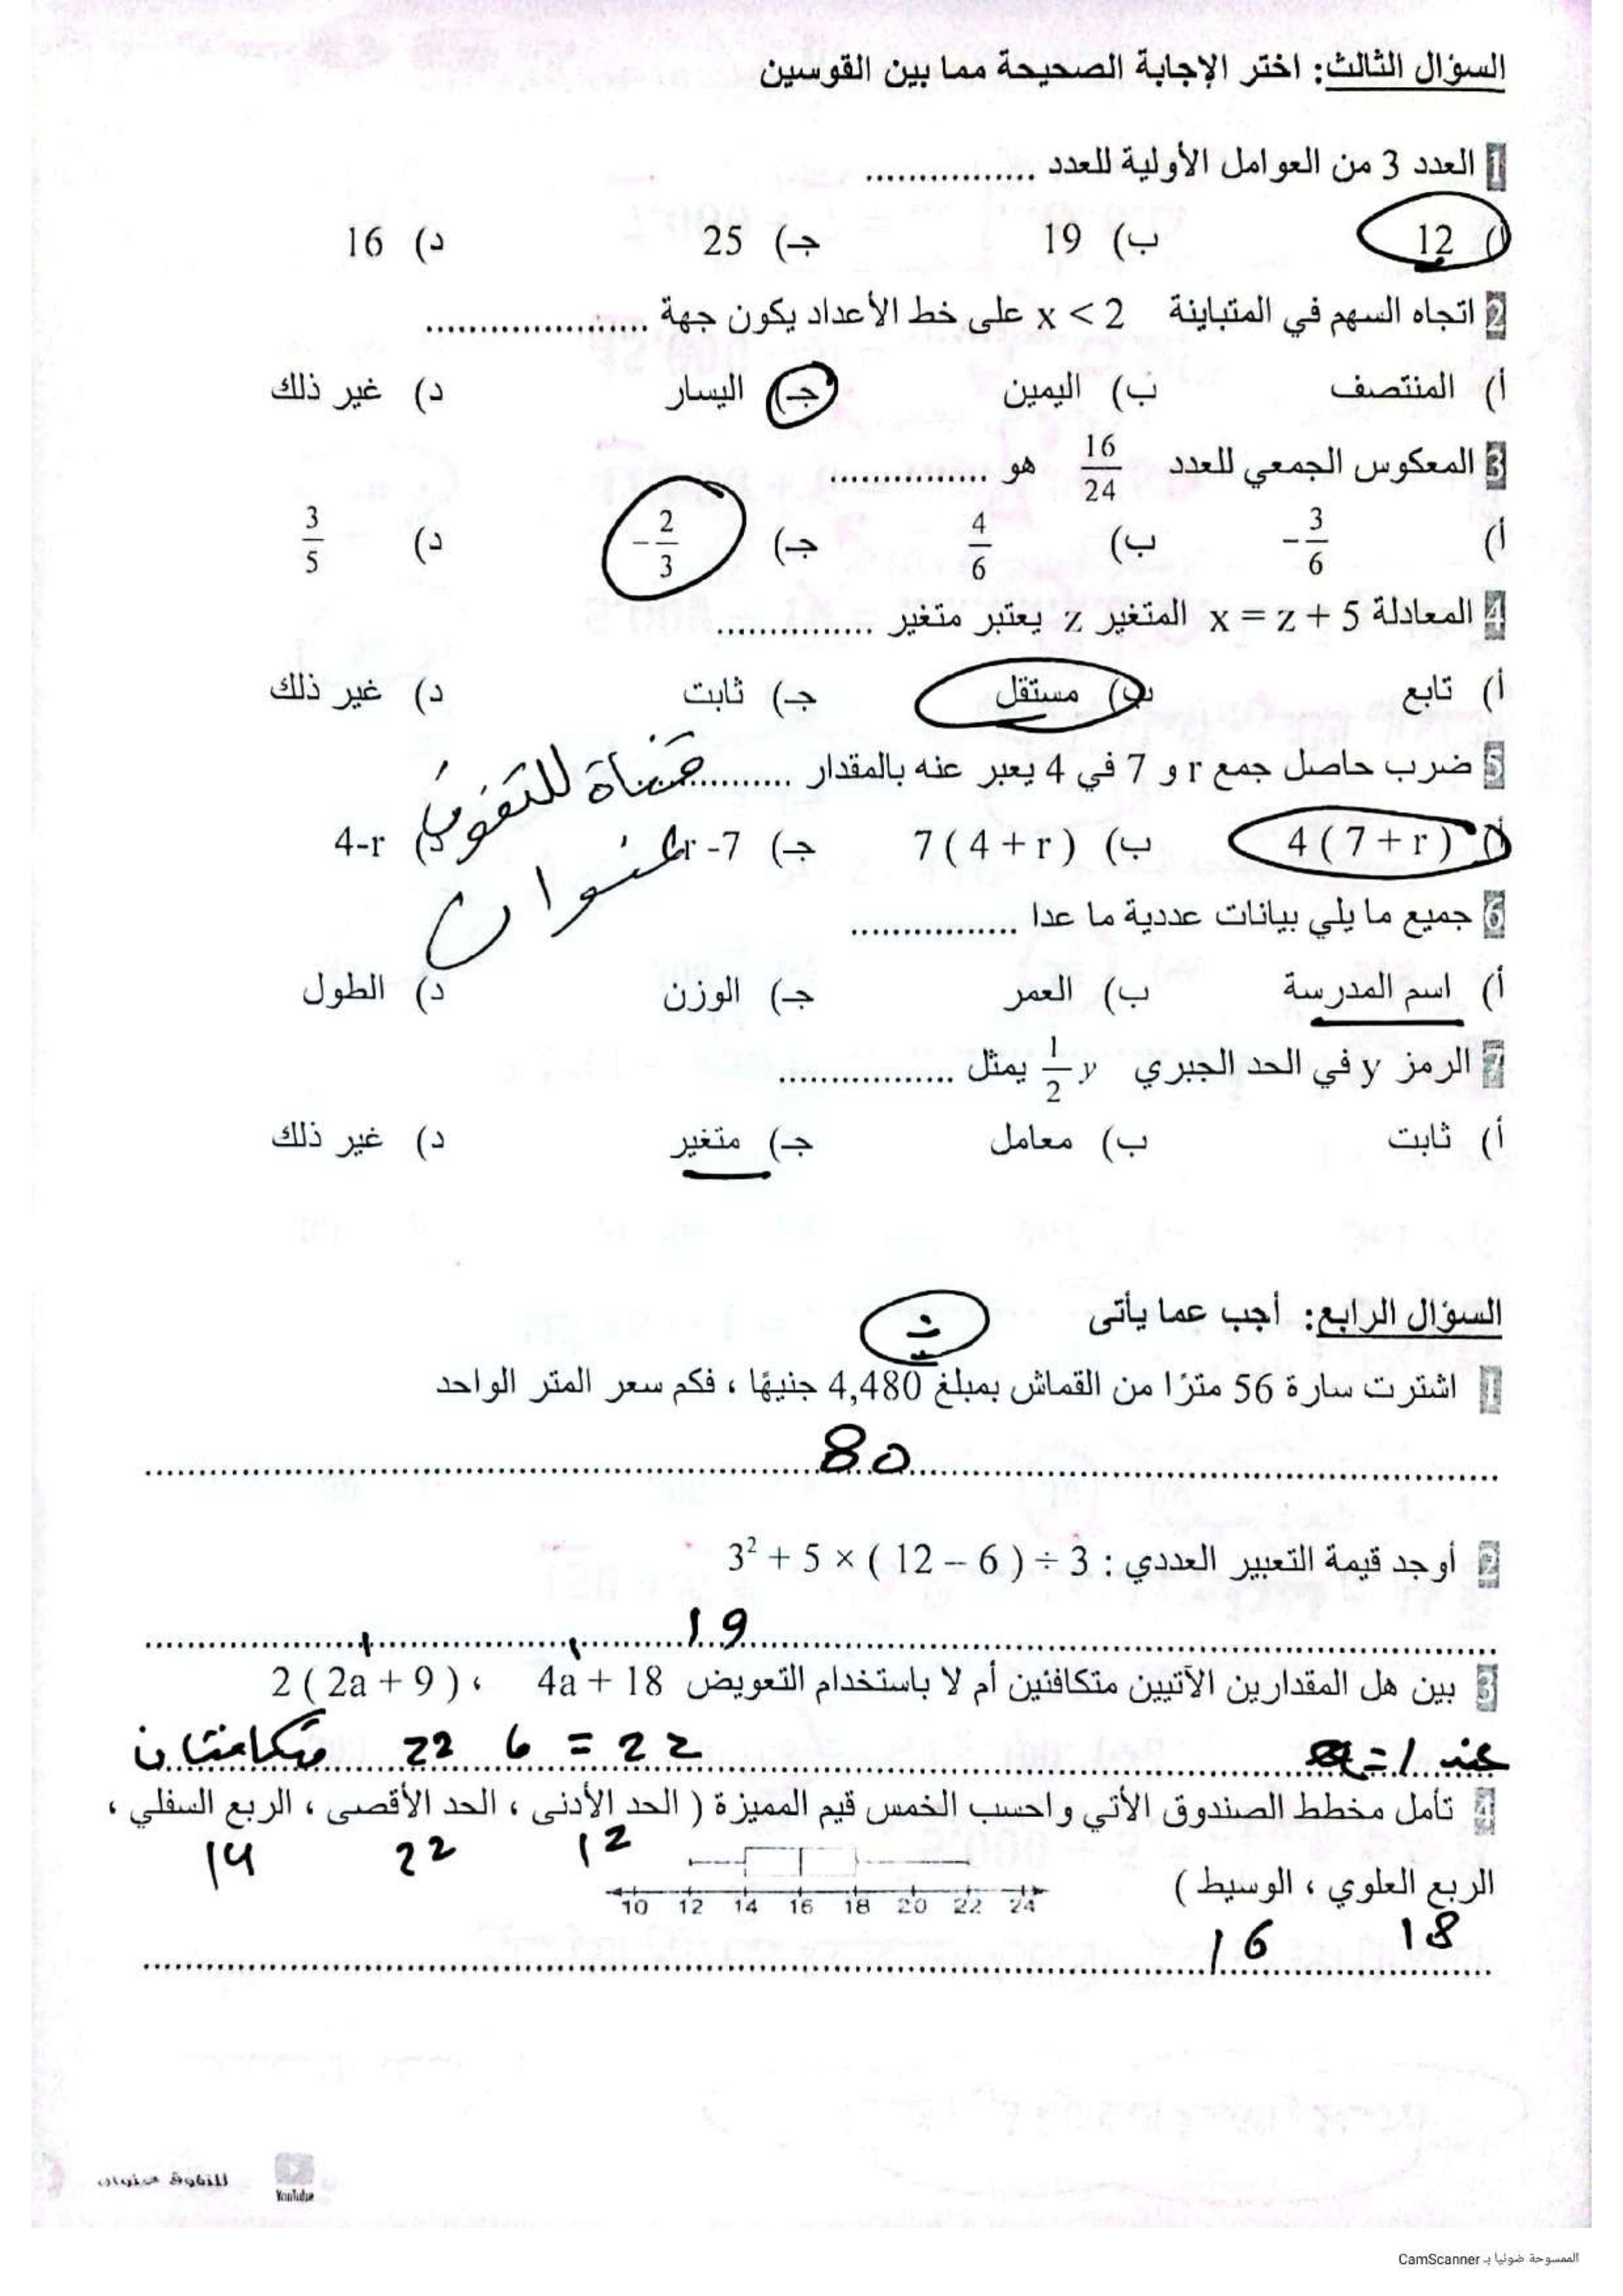 السؤال الثالث: اختر الإجابة الصحيحة مما بين القوسين
1 العدد 3 من العوامل الأولية للعدد ................
أ) 12 ب) 19 جـ) 25 د) 16
2 اتجاه السهم في المتباينة x < 2 على خط الأعداد يكون جهة .....................
أ) المنتصف ب) اليمين جـ) اليسار د) غير ذلك
3 المعكوس الجمعي للعدد 16/24 هو ...............
أ) -3/6 ب) 4/6 جـ) -2/3 د) 3/5
4 المعادلة x = z + 5 المتغير z يعتبر متغير ...............
أ) تابع ب) مستقل جـ) ثابت د) غير ذلك
5 ضرب حاصل جمع r و 7 في 4 يعبر عنه بالمقدار ...........
قناة للتفوق عنوان
أ) 4 ( 7 + r ) ب) 7 ( 4 + r ) جـ) r -7 د) 4-r
6 جميع ما يلي بيانات عددية ما عدا ................
أ) اسم المدرسة ب) العمر جـ) الوزن د) الطول
7 الرمز y في الحد الجبري 1/2 y يمثل .................
أ) ثابت ب) معامل جـ) متغير د) غير ذلك
السؤال الرابع: أجب عما يأتى
1 اشترت سارة 56 مترًا من القماش بمبلغ 4,480 جنيهًا ، فكم سعر المتر الواحد
80
2 أوجد قيمة التعبير العددي : 3² + 5 × ( 12 – 6 ) ÷ 3
19
3 بين هل المقدارين الآتيين متكافئين أم لا باستخدام التعويض 4a + 18 ، 2 ( 2a + 9 )
عند a=1 22 = 22 متكافئتان
4 تأمل مخطط الصندوق الأتي واحسب الخمس قيم المميزة ( الحد الأدنى ، الحد الأقصى ، الربع السفلي ،
12 22 14
الربع العلوي ، الوسيط )
10 12 14 16 18 20 22 24
18 16
للتفوق عنوان
YouTube
الممسوحة ضوئيا بـ CamScanner